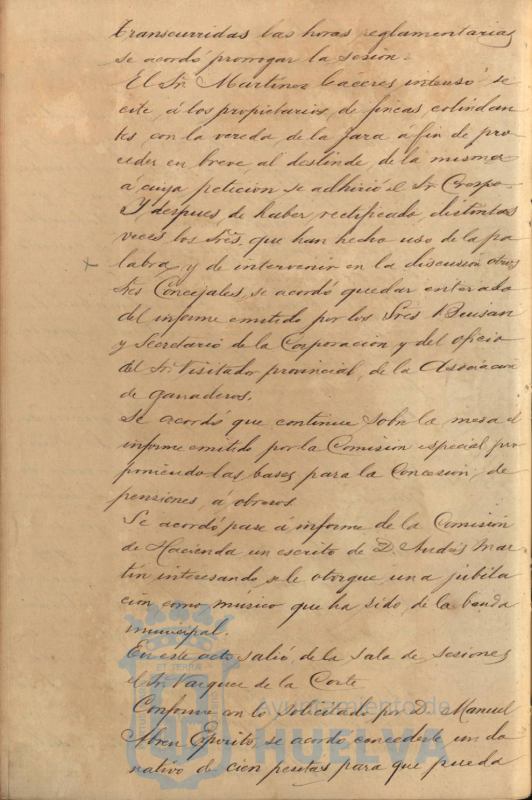 transcurridas las horas reglamentarias
se acordó prorrogar la sesión.
El Sr. Martinez Caceres intensó se
cite, á los propietarios, de fincas colindan
tes con la vereda, de la Jara á fin de pro
ceder en breve al deslinde, de la misma
á cuya petición se adhirió el Sr. Crespo.
Y despues de haber rectificado, distintas
veces los Sres. que han hecho uso de la pa
labra, y de intervenir en la discusion otros
Sres Concejales, se acordó quedar enterado
del informe emitido por los Sres
y Secretario de la Corporación y del oficio
del Sr. Visitador provincial, de la Asociación
de ganaderos.
Se acordó que continue sobre la mesa el
informe emitido por la Comision especial pro
poniendo las bases para la Concesión, de
pensiones, á obreros.
Se acordó pase á informe de la Comisión
de Hacienda un escrito de D. Andrés Mar
tín interesando, se le otorgue una jubila
ción como músico que ha sido, de la banda
municipal.
En este acto salió, de la Sala de Sesiones
el Sr. Vazquez de la Corte
Conforme con lo solicitado por D. Manuel
Abreu Esposito, se acordó concederle un do
nativo de cien pesetas para que pueda
ET TERRA
Ayuntamiento de
HUELVA